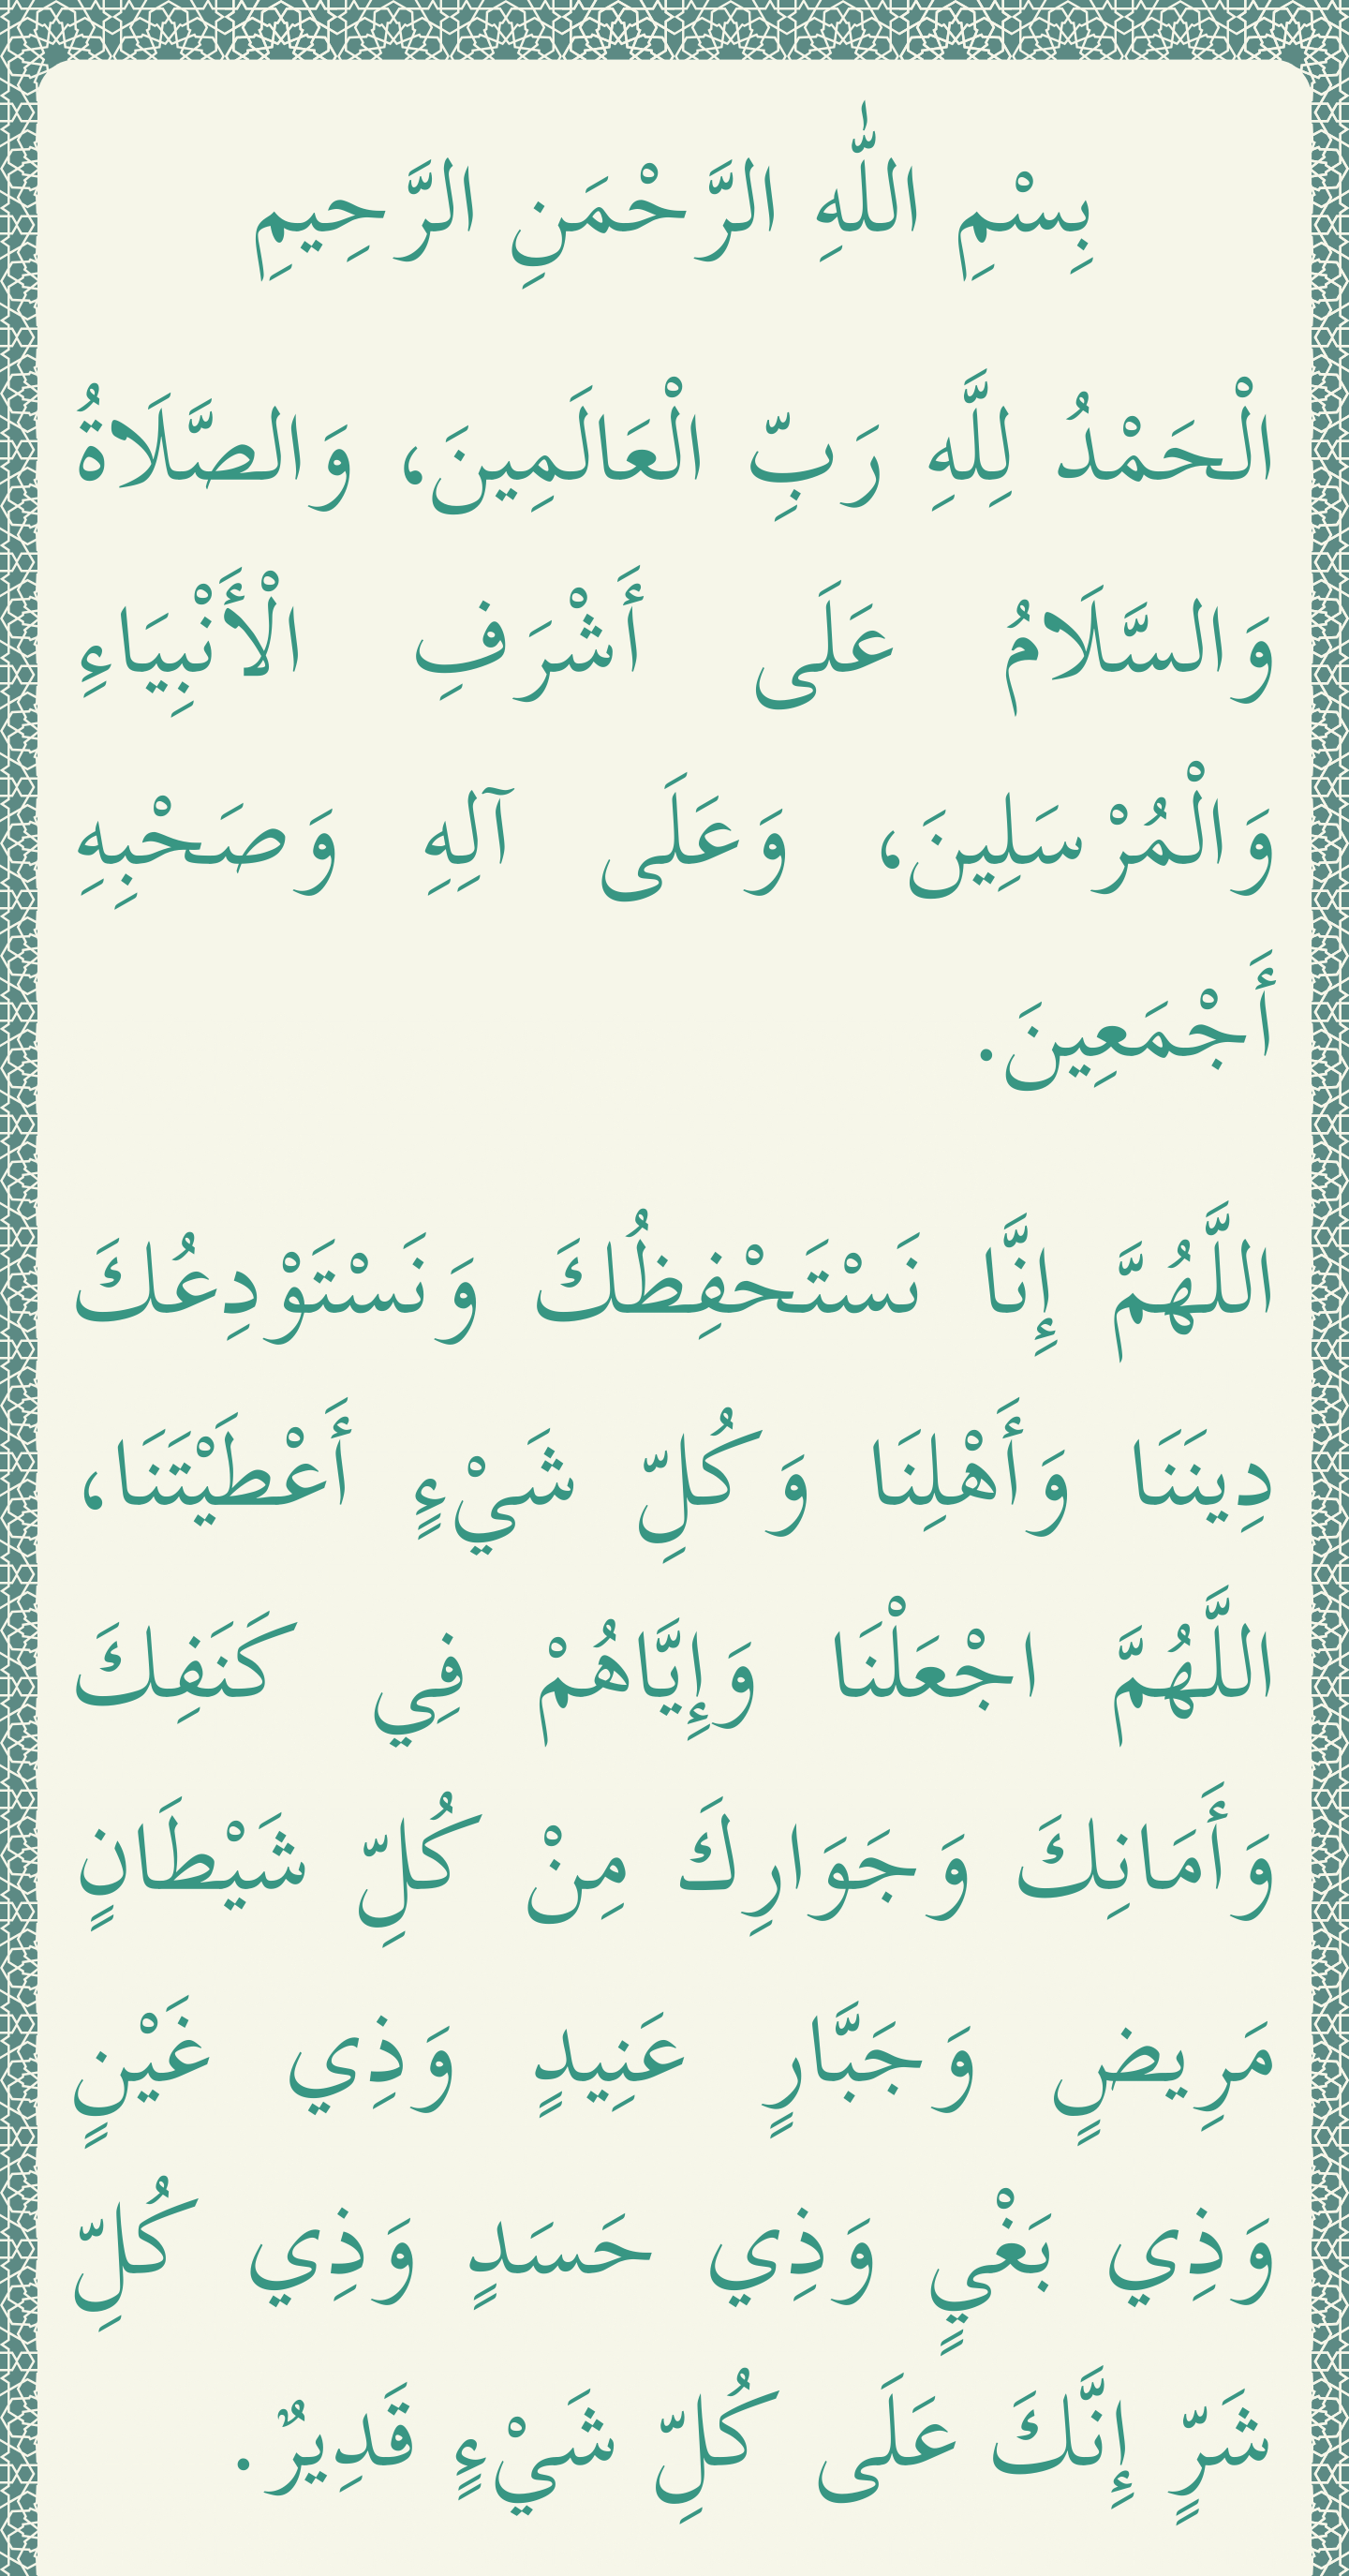 بِسْمِ اللّٰهِ الرَّحْمَنِ الرَّحِيمِ
الْحَمْدُ لِلَّهِ رَبِّ الْعَالَمِينَ، وَالصَّلَاةُ
وَالسَّلَامُ عَلَى أَشْرَفِ الْأَنْبِيَاءِ
وَالْمُرْسَلِينَ، وَعَلَى آلِهِ وَصَحْبِهِ
أَجْمَعِينَ.
اللَّهُمَّ إِنَّا نَسْتَحْفِظُكَ وَنَسْتَوْدِعُكَ
دِينَنَا وَأَهْلِنَا وَكُلِّ شَيْءٍ أَعْطَيْتَنَا،
اللَّهُمَّ اجْعَلْنَا وَإِيَّاهُمْ فِي كَنَفِكَ
وَأَمَانِكَ وَجَوَارِكَ مِنْ كُلِّ شَيْطَانٍ
مَرِيضٍ وَجَبَّارٍ عَنِيدٍ وَذِي غَيْنٍ
وَذِي بَغْيٍ وَذِي حَسَدٍ وَذِي كُلِّ
شَرٍّ إِنَّكَ عَلَى كُلِّ شَيْءٍ قَدِيرٌ.